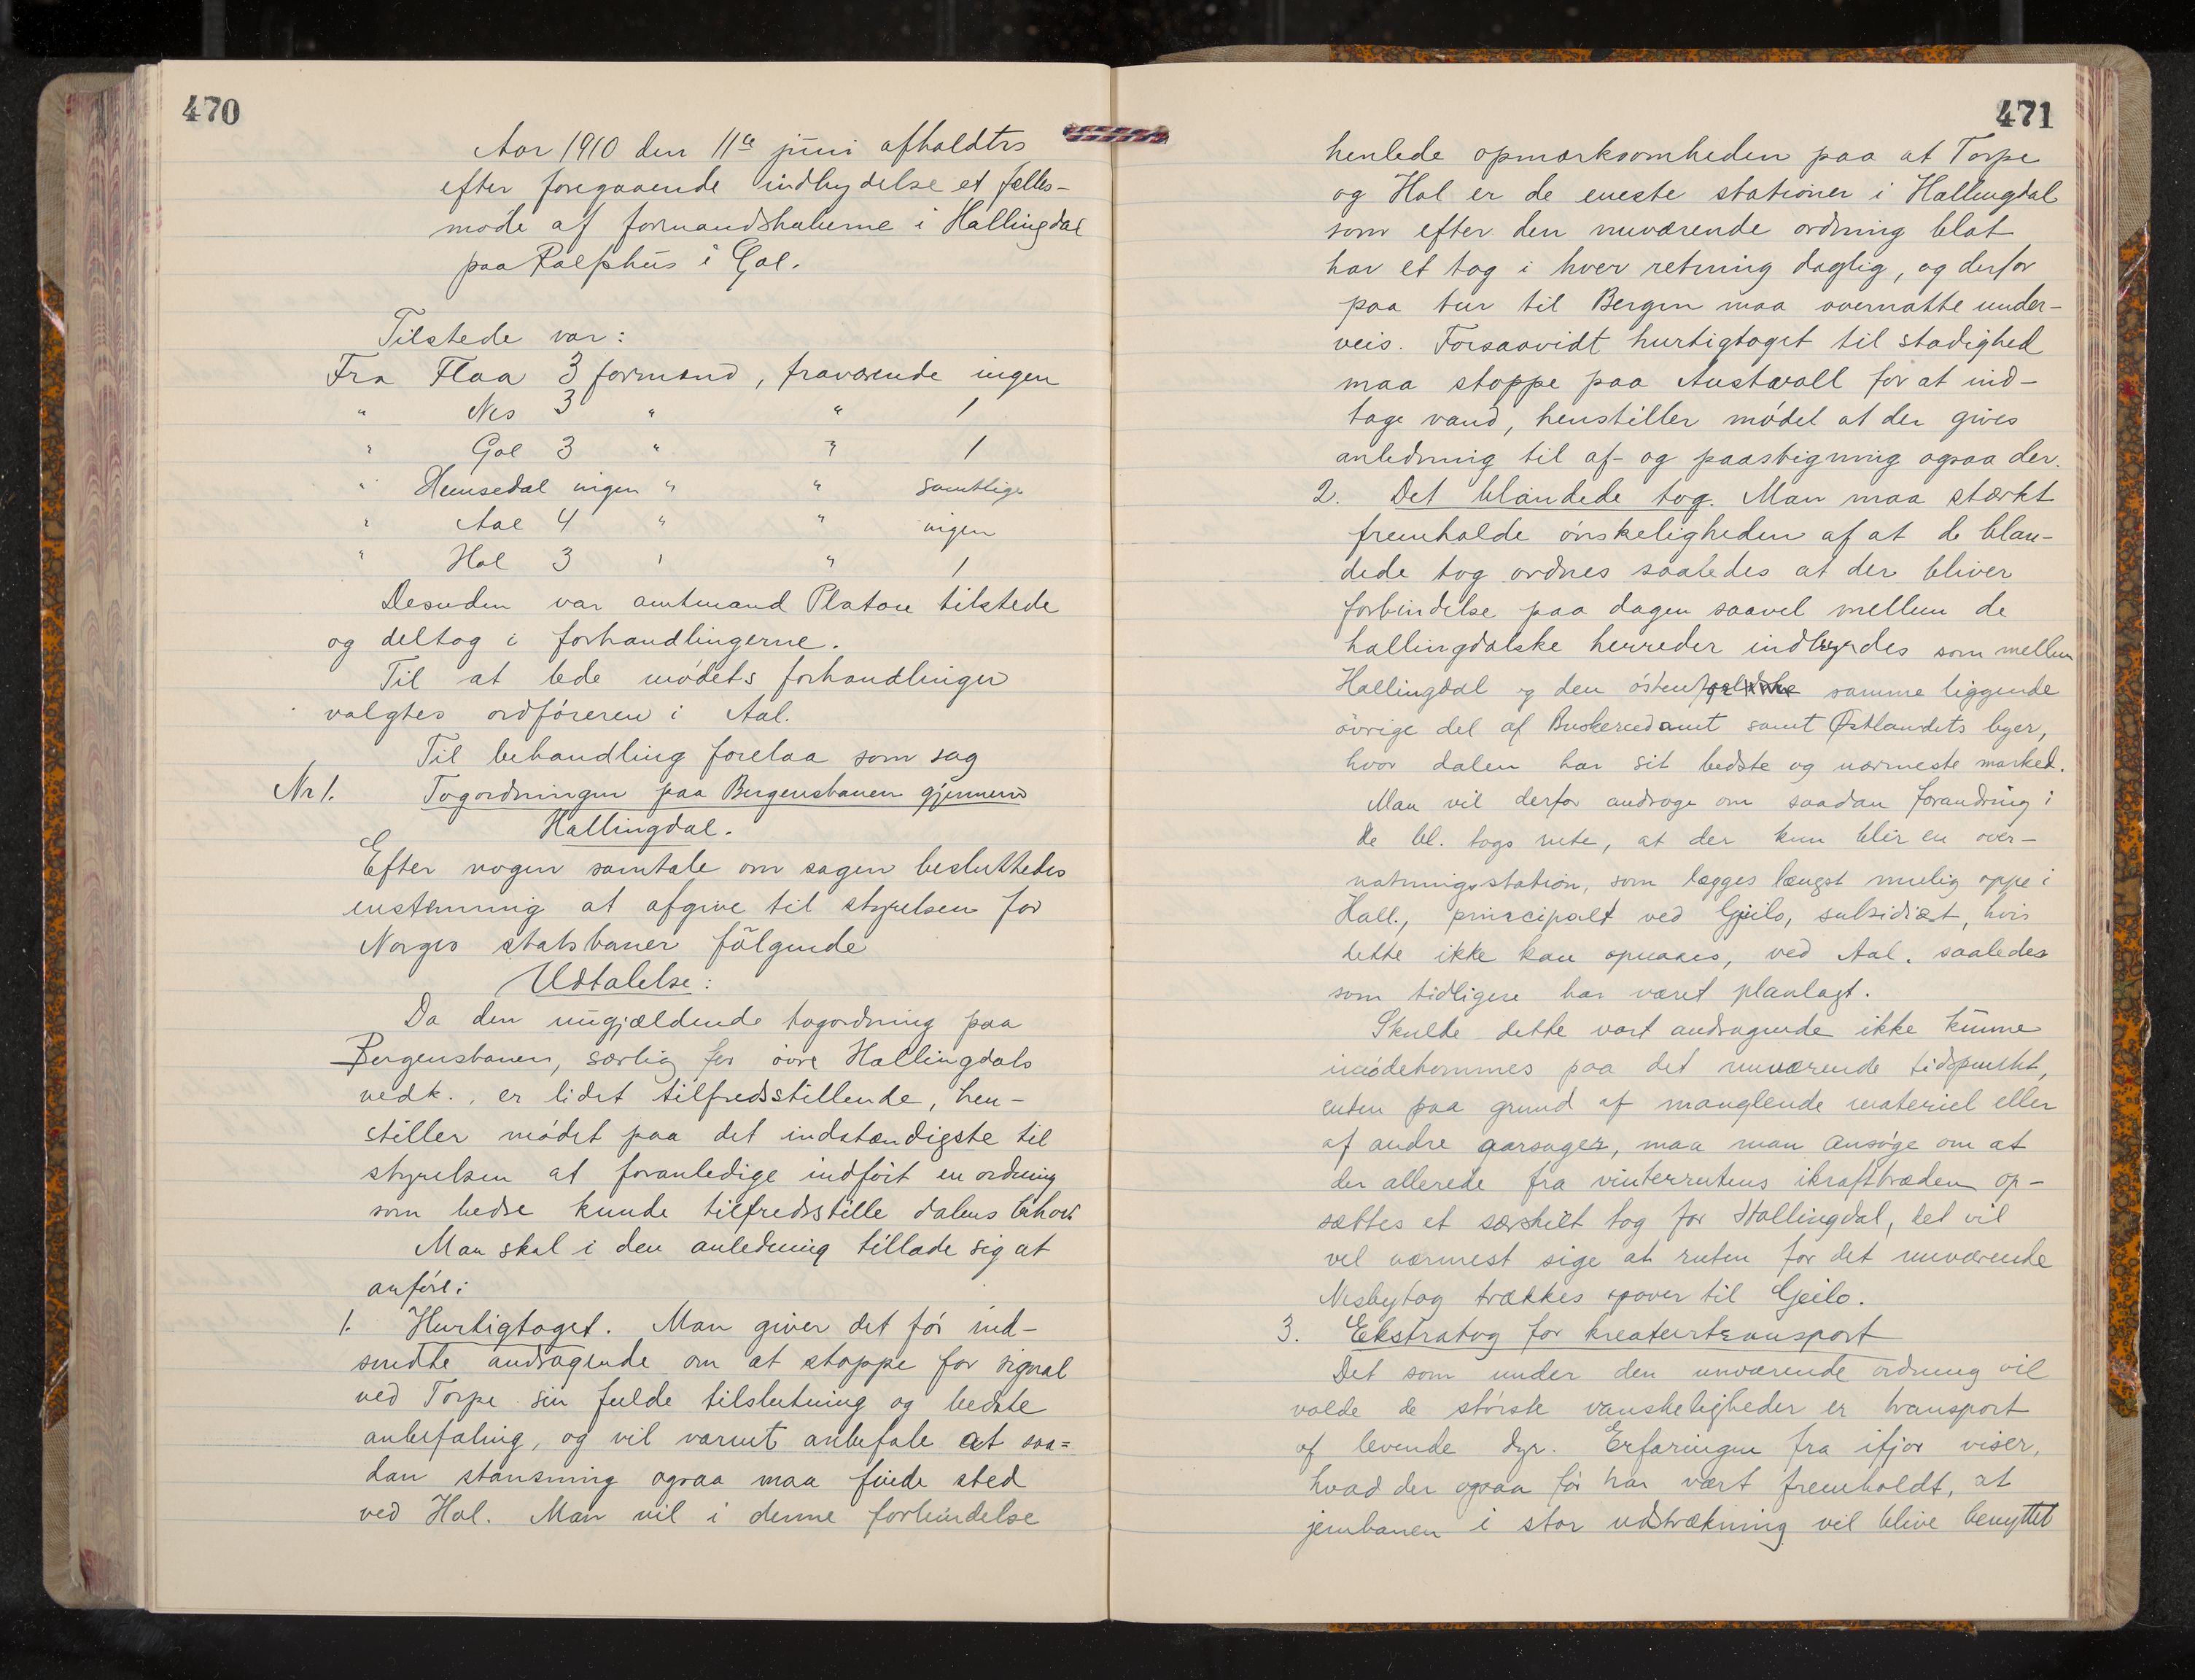 470
Aar 1910 den 11te juni afholdtes
efter foregaaende indbydelse et fælles-
møde af formandskaberne i Hallingdal
paa Rolfshus i Gol.
Tilstede var:
Fra Flaa 3 formænd, fraværende ingen
" Nes 3 " " 1
" Gol 3 " " 1
" Hemsedal ingen " " samtlige
" Aal 4 " " ingen
" Hol 3 " " 1
Desuden var amtmand Platou tilstede
og deltog i forhandlingerne.
Til at lede mødets forhandlinger
valgtes ordføreren i Aal.
Til behandling forelaa som sag
Nr 1. Togordningen paa Bergensbanen gjennem
Hallingdal.
Efter nogen samtale om sagen besluttedes
enstemmig at afgive til styrelsen for
Norges statsbaner følgende
Udtalelse:
Da den nugjældende togordning paa
Bergensbanen, særlig for øvre Hallingdals
vedk., er lidet tilfredsstillende, hen-
stiller mødet paa det indstændigste til
styrelsen at foranledige indført en ordning
som bedre kunde tilfredsstille dalens behov.
Man skal i den anledning tillade sig at
anføre:
1. Hurtigtoget. Man giver det før ind-
sendte andragende om at stoppe for signal
ved Torpe sin fulde tilslutning og bedste
anbefaling, og vil varmt anbefale at saa=
dan stansning ogsaa maa finde sted
ved Hol. Man vil i denne forbindelse
471
henlede opmærksomheden paa at Torpe
og Hol er de eneste stationer i Hallingdal
som efter den nuværende ordning blot
har et tog i hver retning daglig, og derfor
paa tur til Bergen maa overnatte under-
veis. Forsaavidt hurtigtoget til stadighed
maa stoppe paa Austavoll for at ind-
tage vand, henstiller mødet at der gives
anledning til af- og paastigning ogsaa der.
2. Det blandede tog. Man maa stærkt
fremholde ønskeligheden af at de blan-
dede tog ordnes saaledes at der bliver
forbindelse paa dagen saavel mellem de
hallingdalske herreder indbyrdes som mellem
Hallingdal og den østenfor samme liggende
øvrige del af Buskerud amt samt Østlandets byer,
hvor dalen har sit bedste og nærmeste marked.
Man vil derfor andrage om saadan forandring i
de bl. togs rute, at der kun blir en over-
natningsstation, som lægges længst mulig oppe i
Hall., principalt ved Gjeilo, subsidiært, hvis
dette ikke kan opnaaes, ved Aal, saaledes
som tidligere har været planlagt.
Skulde dette vort andragende ikke kunne
imødekommes paa det nuværende tidspunkt,
enten paa grund af manglende materiel eller
af andre aarsager, maa man ansøge om at
der allerede fra vinterrutens ikrafttræden op-
sættes et særskilt tog for Hallingdal, det vil
vel nærmest sige at ruten for det nuværende
Nesbytog trækkes opover til Gjeilo.
3. Ekstratog for kreaturtransport
Det som under den nuværende ordning vil
volde de største vanskeligheder er transport
af levende dyr. Erfaringen fra ifjor viser,
hvad der ogsaa før har vært fremholdt, at
jernbanen i stor udstrækning vil blive benyttet